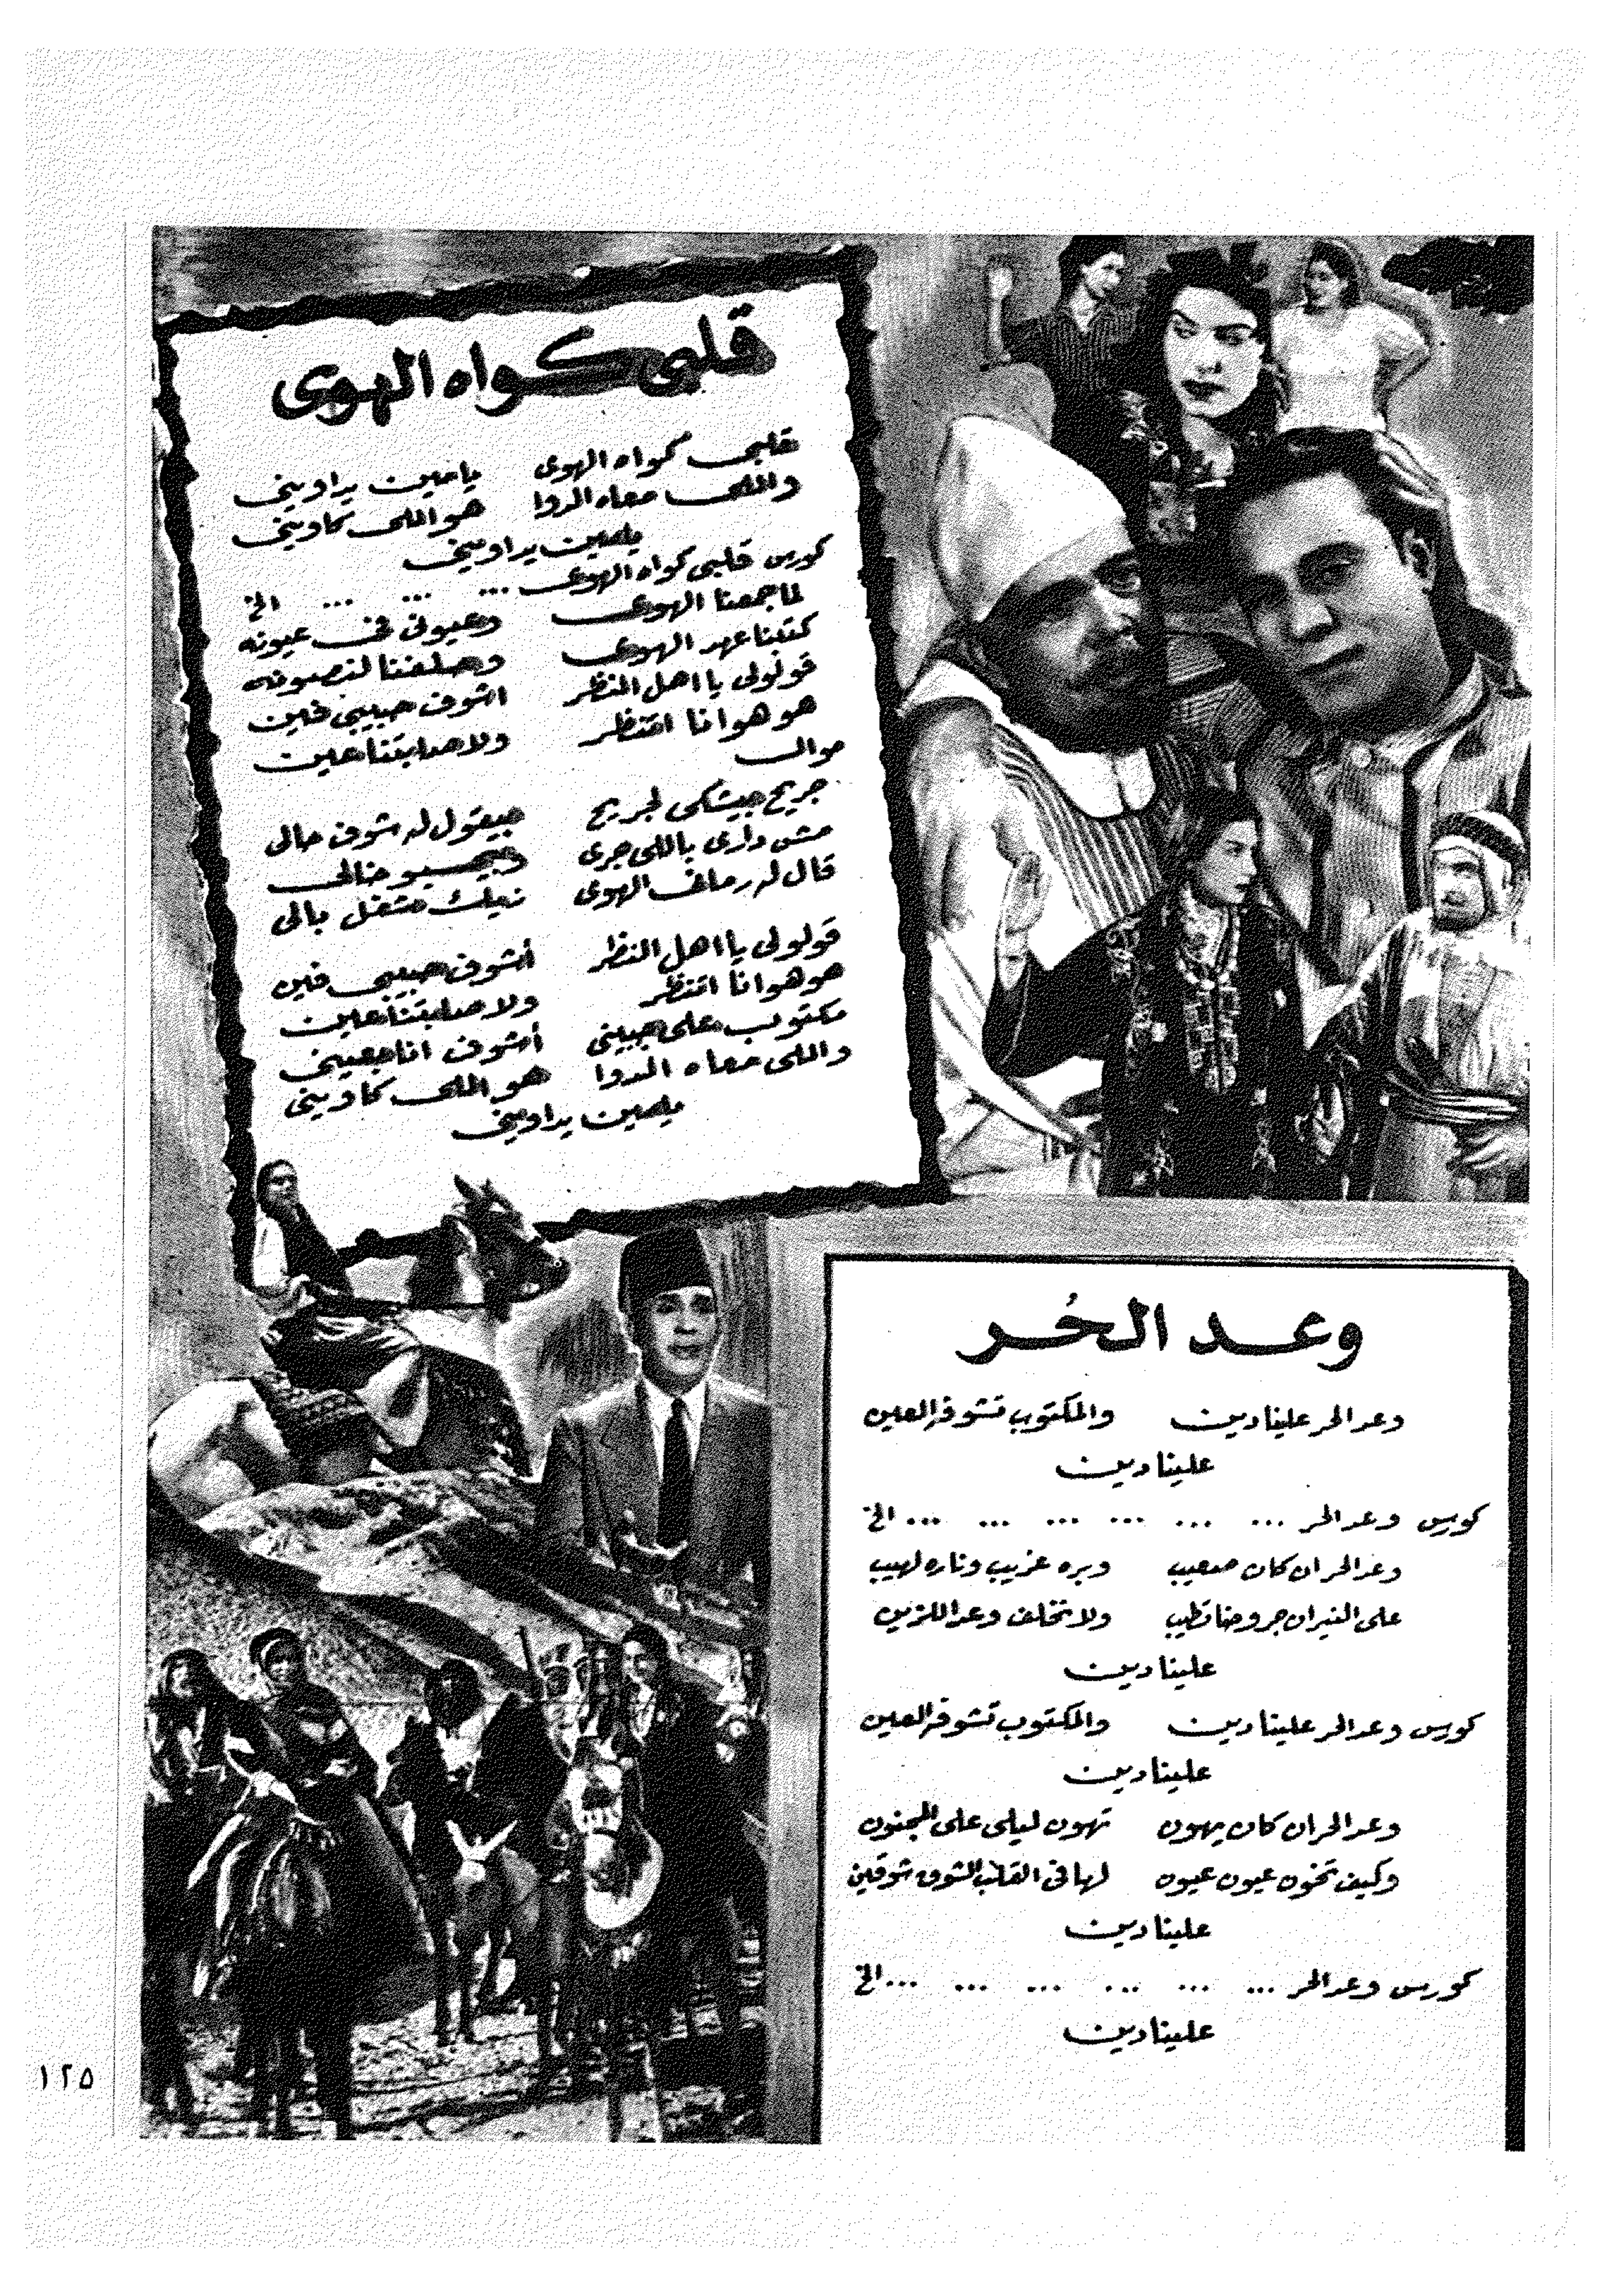 قلبى كواه الهوى
قلبى كواه الهوى يا مين يداوينى
واللى معاه الدوا هو اللى كاوينى
يا مين يداوينى
كورس قلبى كواه الهوى ... ... ... الخ
لما جمعنا الهوى وعيونى فى عيونه
كتبنا عهد الهوى وحلفنا لنصونه
قولولى يا اهل النظر اشوف حبيبى فين
هو هو انا انتظر ولا حدا بتنا عين
موال
جريح جيشكى لجريح جيقول له شوف حالى
مش دارى باللى جرى خالى
قال له رماك الهوى متغل بالى
قولولى يا اهل النظر أشوف حبيبى فين
هو هو انا انتظر ولا حدا بتنا عين
مكتوب على جبينى أشوف انا بعينى
واللى معاه الدوا هو اللى كاوينى
يا مين يداوينى
وعد الحُر
وعد الحر علينا دين والمكتوب تشوفه العين
علينا دين
كورس وعد الحر ... ... ... ... ... ... الخ
وعد الحر ان كان صعيب وبره غريب وناره لهيب
على النيران جروحنا تطيب ولا تخلف وعد اللزين
علينا دين
كورس وعد الحر علينا دين والمكتوب تشوفه العين
علينا دين
وعد الحر ان كان يهون تهون ليلى على المجنون
وكيف تخون عيون عيون لها فى القلب الشوق شوقين
علينا دين
كورس وعد الحر ... ... ... ... ... ... الخ
علينا دين
١٢٥